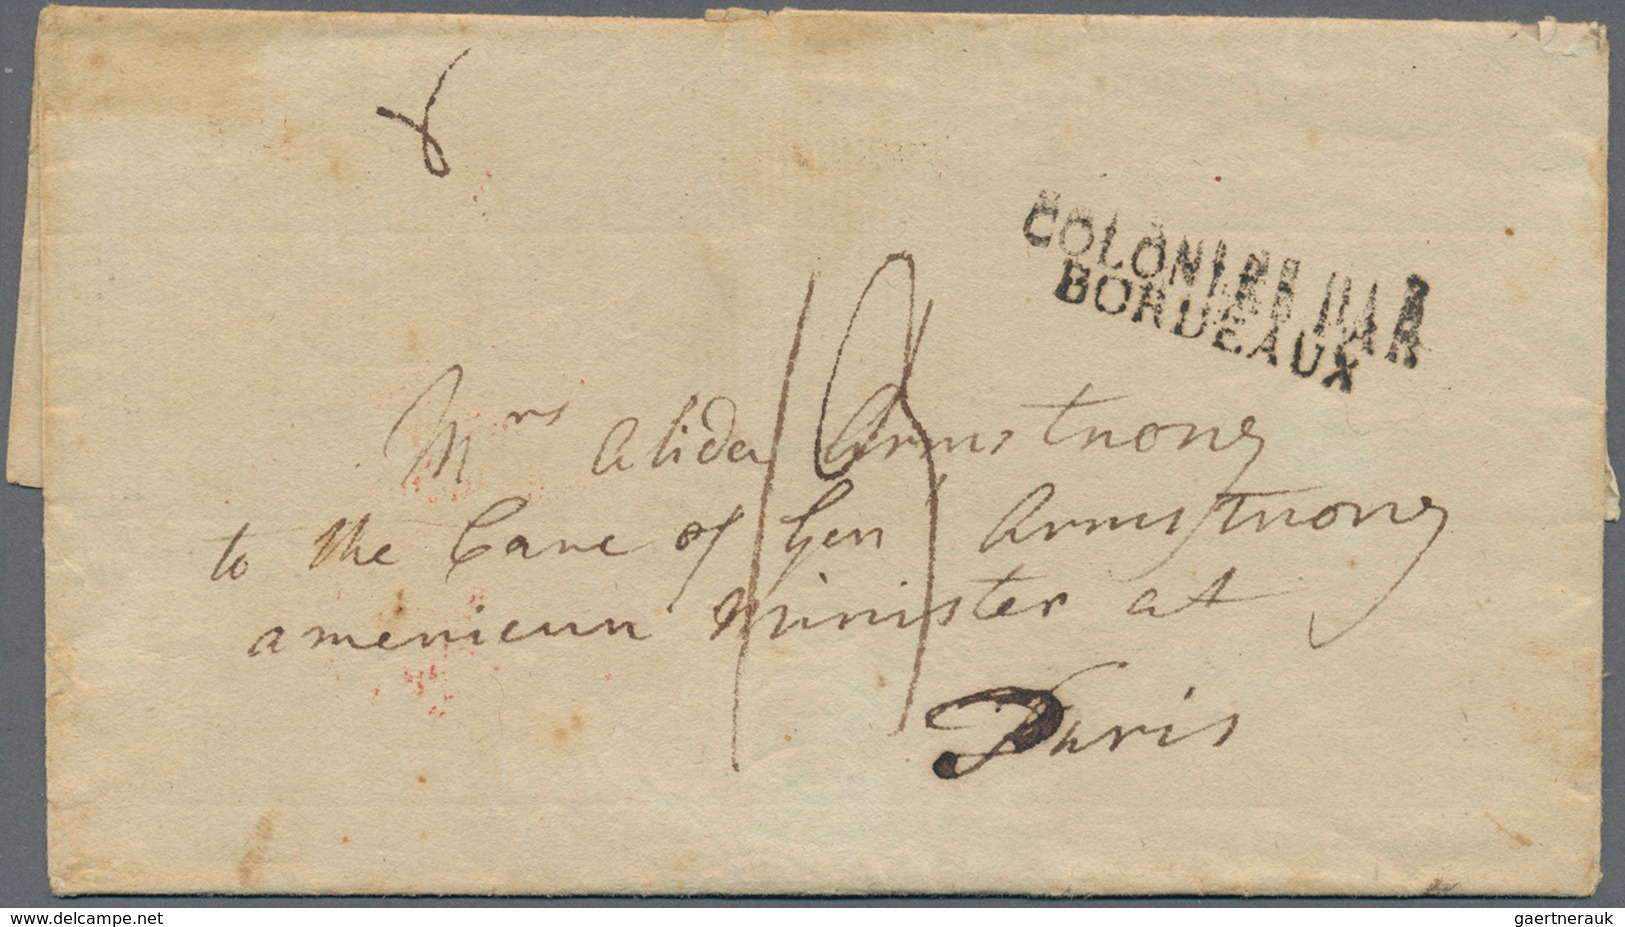 COLONIES PAR
BORDEAUX
Mrs Alida Armstrong
to the Care of Gen Armstrong
american Minister at
Paris
www.delcampe.net
gaertnerauk